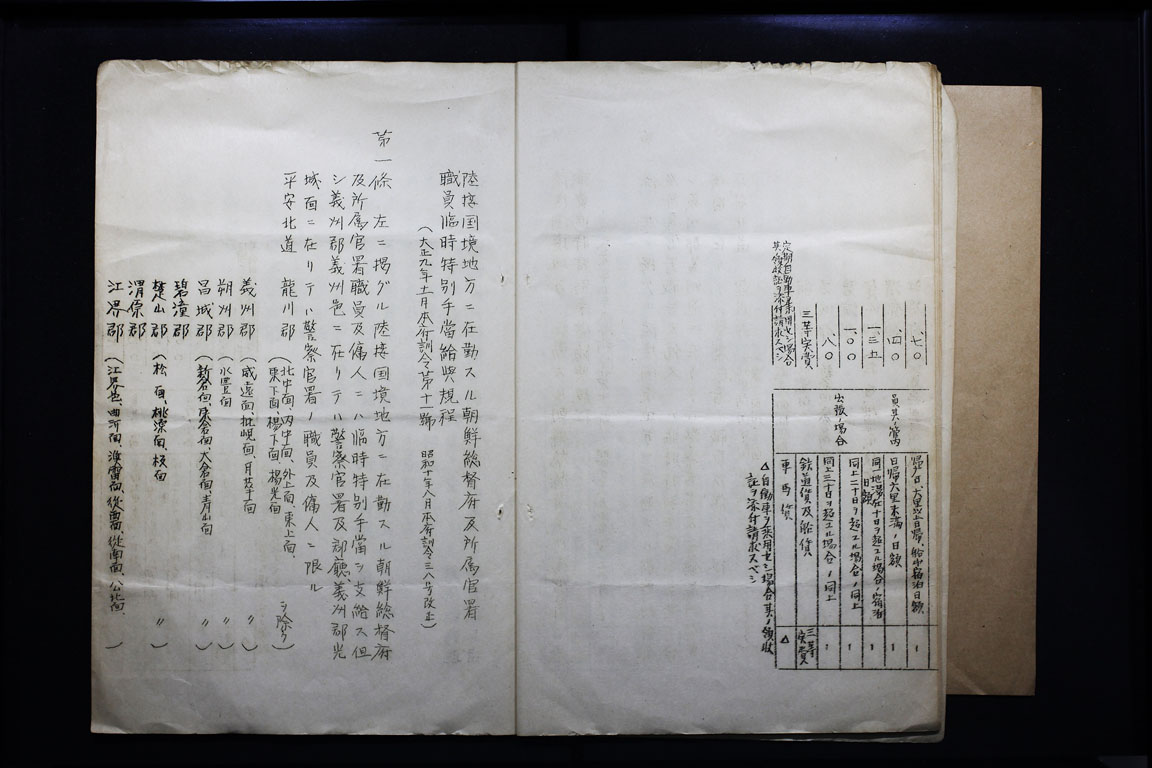 七〇
四〇
一、三五
一、〇〇
八〇
三等実費
定期自動車乗用セシ場合
其ノ領収証ヲ添付請求スベシ
員其ノ管内
出張場合
帰日、六里以上日帰、船中宿泊日額
日帰六里未満ノ日額
同一地滞在十日ヲ超エル場合ノ宿泊日額
同上二十日ヲ超エル場合ノ同上
同上三十日ヲ超エル場合ノ同上
鉄道賃及船賃
三等実費
車馬賃
△
△自働車ヲ乗用セシ場合其ノ領収
証ヲ添付請求スベシ
陸接国境地方ニ在勤スル朝鮮総督府及所属官署
職員臨時特別手當給與規程
(大正九年十一月本府訓令第十一號 昭和十年八月本府訓令三八号改正)
第一條 左ニ掲グル陸接国境地方ニ在勤スル朝鮮総督府
及所属官署職員及傭人ニハ臨時特別手當ヲ支給ス但
シ義州郡義州邑ニ在リテハ警察官署及郡廳義州郡光
城面ニ在リテハ警察官署ノ職員及傭人ニ限ル
平安北道 龍川郡 (北中面、内中面、外上面、東上面、
東下面、楊下面、楊光面 ヲ除ク)
義州郡 (威遠面、枇峴面、月華面 〃 )
朔州郡 (水豊面 〃 )
昌城郡 (新倉面、東倉面、大倉面、青山面 〃 )
碧潼郡
楚山郡 (松面、桃源面、板面 〃 )
渭原郡
江界郡 (江界邑、曲河面、漁雷面、從西面、從南面、公北面、 〃 )